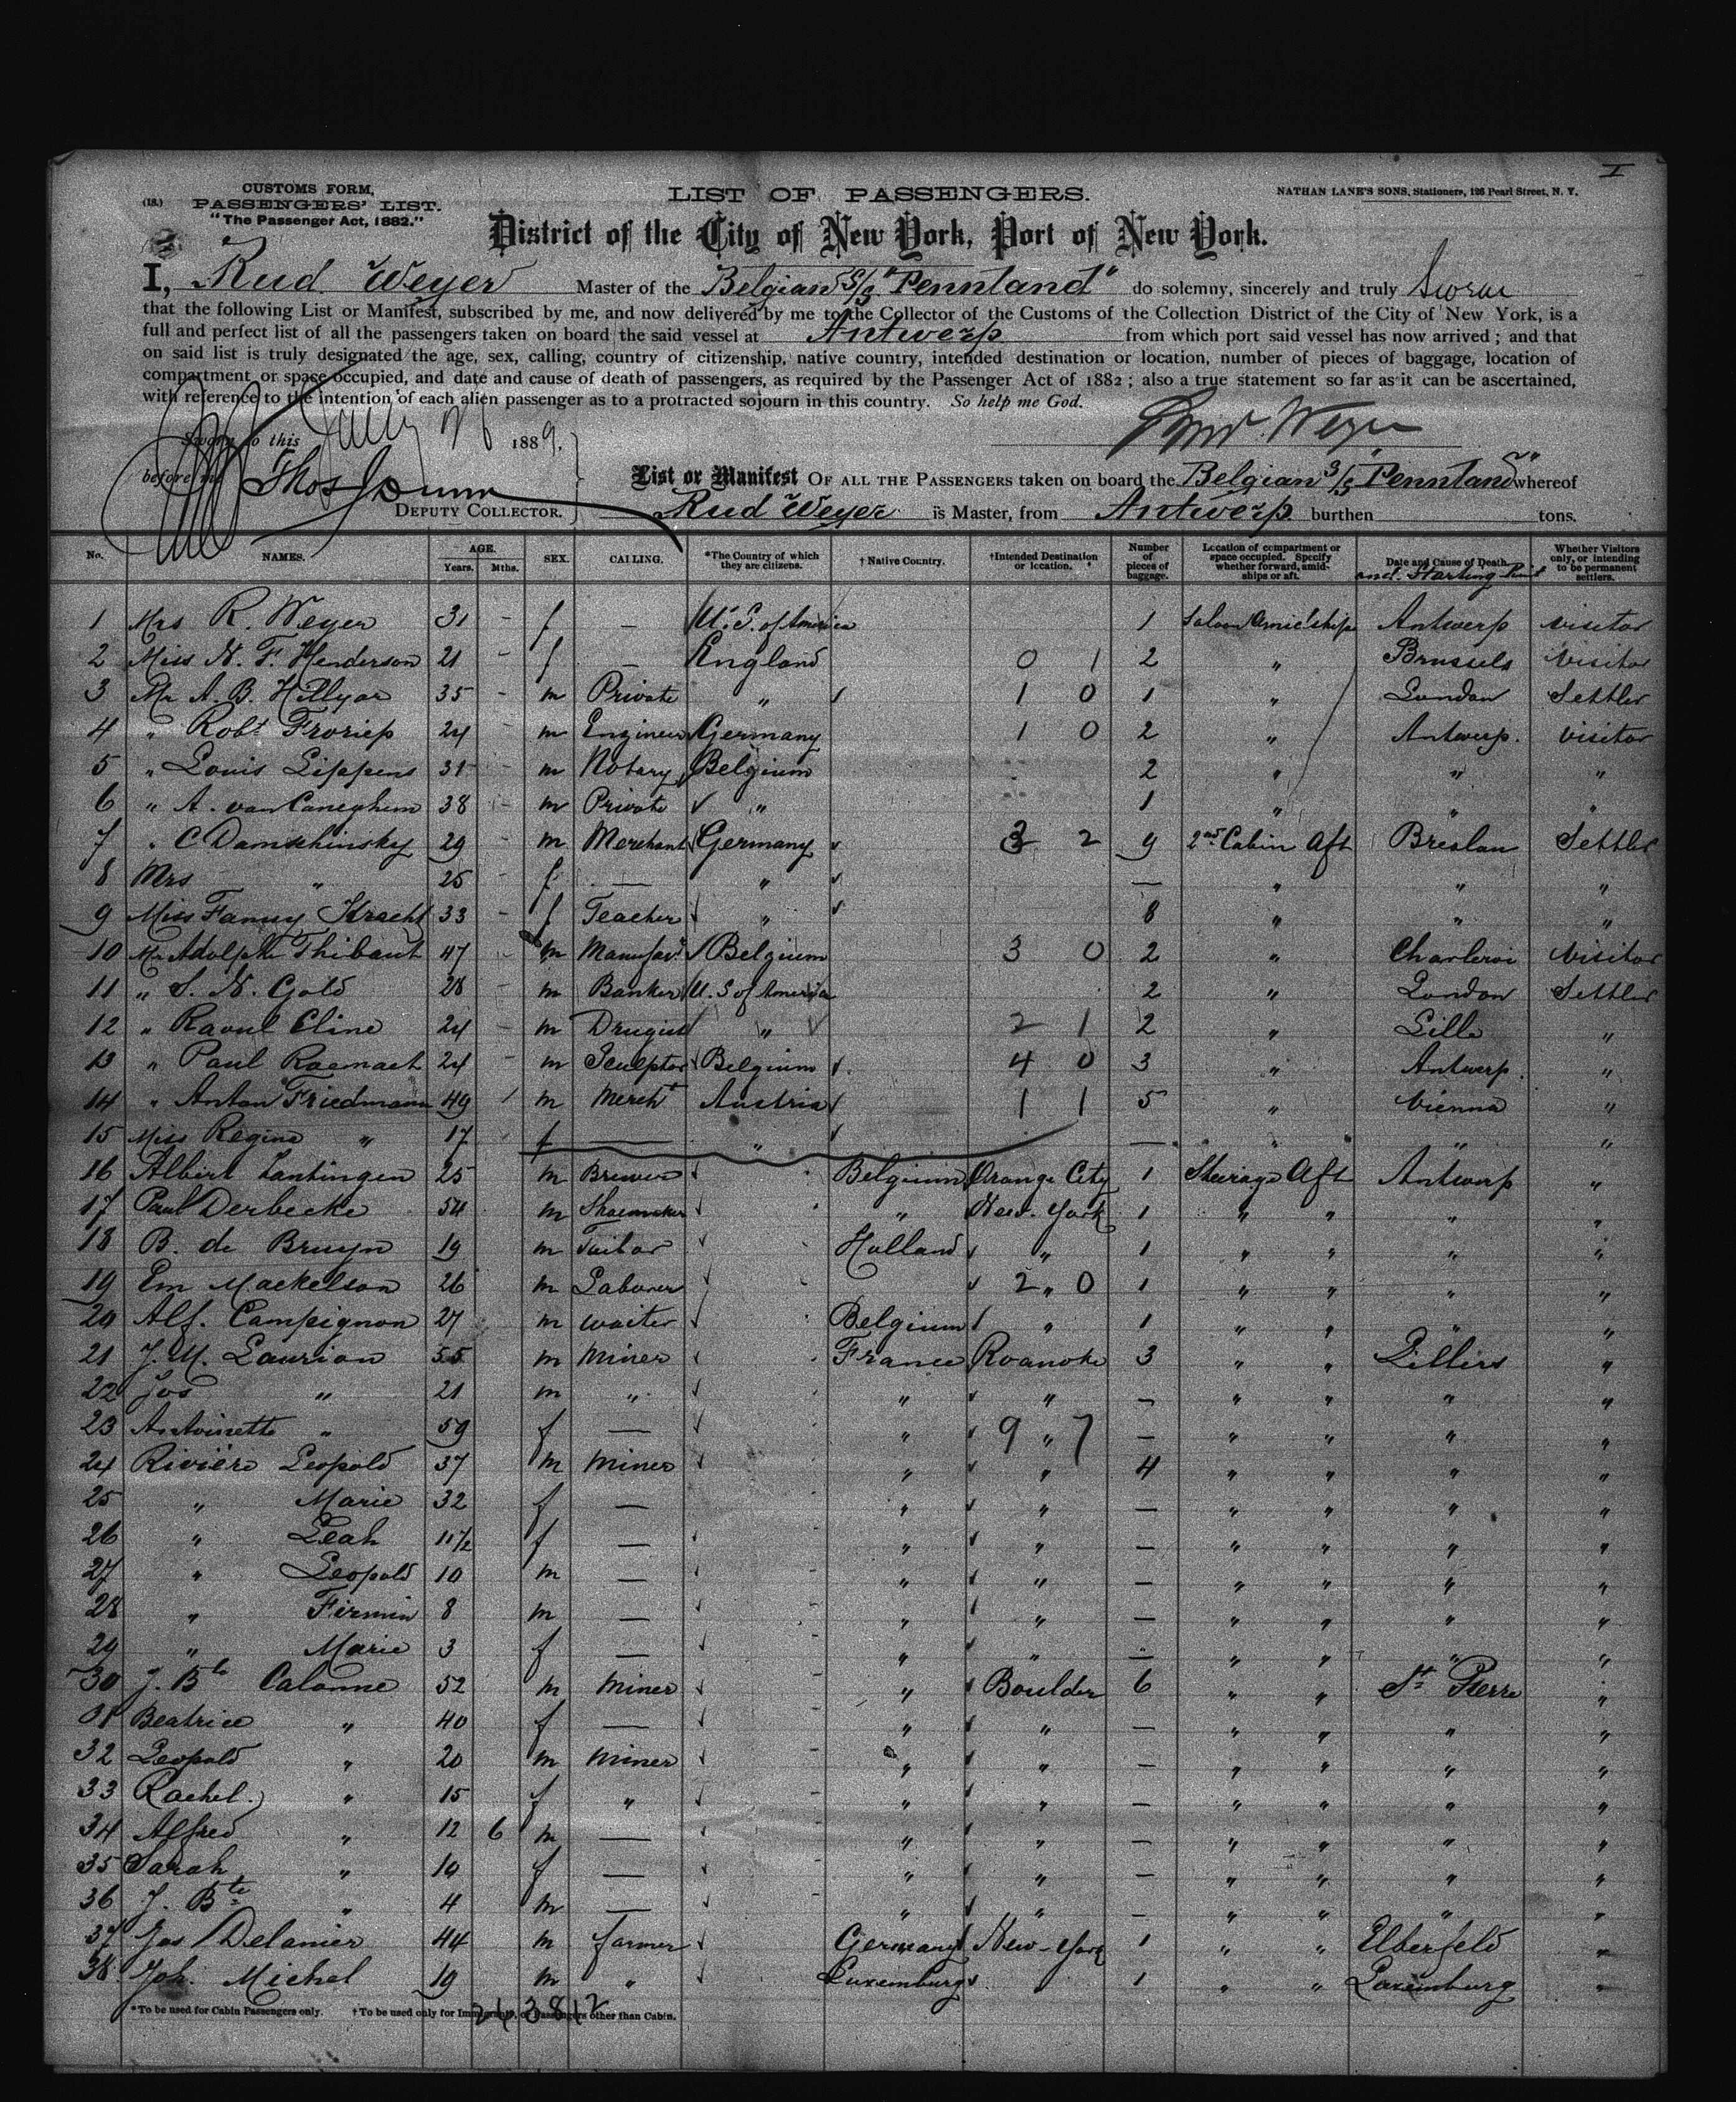 I
CUSTOMS FORM,
(18.) PASSENGERS' LIST.
"The Passenger Act, 1882."
LIST OF PASSENGERS.
NATHAN LANE'S SONS, Stationers, 126 Pearl Street, N. Y.
District of the City of New York, Port of New York.
I, Rud Weyer Master of the Belgian S/S "Pennland" do solemny, sincerely and truly Swear
that the following List or Manifest, subscribed by me, and now delivered by me to the Collector of the Customs of the Collection District of the City of New York, is a
full and perfect list of all the passengers taken on board the said vessel at Antwerp from which port said vessel has now arrived; and that
on said list is truly designated the age, sex, calling, country of citizenship, native country, intended destination or location, number of pieces of baggage, location of
compartment or space occupied, and date and cause of death of passengers, as required by the Passenger Act of 1882; also a true statement so far as it can be ascertained,
with reference to the intention of each alien passenger as to a protracted sojourn in this country. So help me God.
Sworn to this 1889. Weyer
before me Thos Dunn
DEPUTY COLLECTOR.
List or Manifest OF ALL THE PASSENGERS taken on board the Belgian S/S Pennland whereof
Rud Weyer is Master, from Antwerp burthen tons.
No. NAMES. AGE. Years. Mths. SEX. CALLING. *The Country of which they are citizens. † Native Country. †Intended Destination or location. Number of pieces of baggage. Location of compartment or space occupied. Specify whether forward, amidships or aft. Date and Cause of Death. and Starting Point Whether Visitors only, or intending to be permanent settlers.
1 Mrs R. Weyer 31 - f — U. S. of America 1 Saloon Amidships Antwerp visitor
2 Miss N. F. Henderson 21 - f — England 0 1 2 " Brussels visitor
3 Mr A. B. Hillyar 35 - m Private " 1 0 1 " London Settler
4 " Robt Froriep 24 - m Engineer Germany 1 0 2 " Antwerp. visitor
5 " Louis Lippens 31 - m Notary Belgium 2 " " "
6 " A. van Caneghem 38 - m Private " 1 " " "
7 " C Damschinsky 29 - m Merchant Germany 3 2 9 2nd Cabin Aft Breslau Settler
8 Mrs " 25 - f — " — " " "
9 Miss Fanny Kracht 33 - f Teacher " 8 " " "
10 Mr Adolphe Thibaut 47 - m Manufar Belgium 3 0 2 " Charleroi visitor
11 " S. N. Gold 28 - m Banker U. S of America 2 " London Settler
12 " Raoul Cline 24 - m Drugist " 2 1 2 " Lille "
13 " Paul Raemaet 24 - m Sculptor Belgium 4 0 3 " Antwerp. "
14 " Anton Friedmann 49 m Mercht Austria 1 1 5 " Vienna "
15 Miss Regina " 17 f — " — " " "
16 Albert Lantingen 25 m Brewer Belgium Orange City 1 Steerage Aft Antwerp "
17 Paul Derbecke 54 m Shoemaker " New-York 1 " " " "
18 B. de Bruyn 19 m Tailor Holland " 1 " " " "
19 Em Mackelson 26 m Laborer 2 " 0 1 " " " "
20 Alf. Campignon 27 m waiter Belgium " 1 " " " "
21 J. M. Laurian 55 m Miner France Roanoke 3 " " Lillers "
22 Jos " 21 m " " " — " " " "
23 Antoinette " 59 f — " 9 " 7 — " " " "
24 Rivière Leopold 37 m Miner " " 4 " " " "
25 " Marie 32 f — " " — " " " "
26 " Leah 11½ f — " " — " " " "
27 " Leopold 10 m — " " — " " " "
28 " Firmin 8 m — " " — " " " "
29 " Marie 3 f — " " — " " " "
30 J. Bte Calonne 52 m Miner " Boulder 6 " " St Pierre "
31 Beatrice " 40 f — " " — " " " "
32 Leopold " 20 m Miner " " — " " " "
33 Rachel. " 15 f " " " — " " " "
34 Alfred " 12 6 m — " " — " " " "
35 Sarah " 10 f — " " — " " " "
36 J. Bte " 4 m — " " — " " " "
37 Jos Delanier 44 m farmer Germany New-York 1 " " Elberfeld "
38 Joh. Michel 19 m " Luxemburg " 1 " " Luxemburg "
*To be used for Cabin Passengers only. †To be used only for Immigrants, or Passengers other than Cabin.